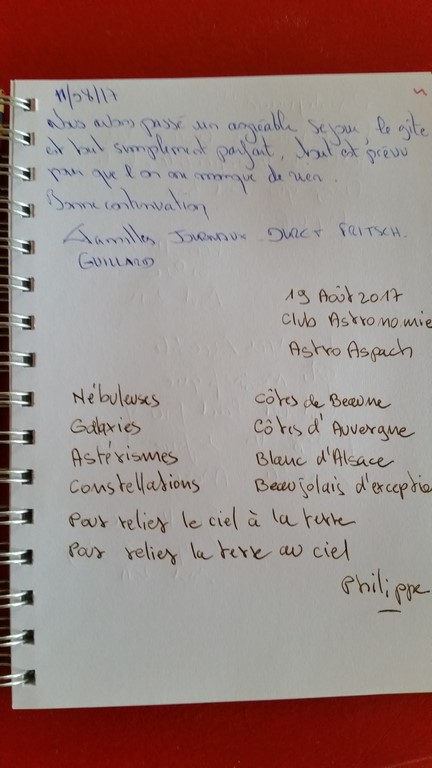 11/08/17
Nous avons passé un agréable séjour, le gîte
est tout simplement parfait, tout est prévu
pour que l'on ne manque de rien.
Bonne continuation
Familles FRITSCH.
GUILLARD
19 Août 2017
Club Astronomie
AstroAspach
Nébuleuses Côtes de Beaune
Galaxies Côtes d'Auvergne
Astérismes Blanc d'Alsace
Constellations Beaujolais d'exceptio
Pour relier le ciel à la terre
Pour relier la terre au ciel
Philippe